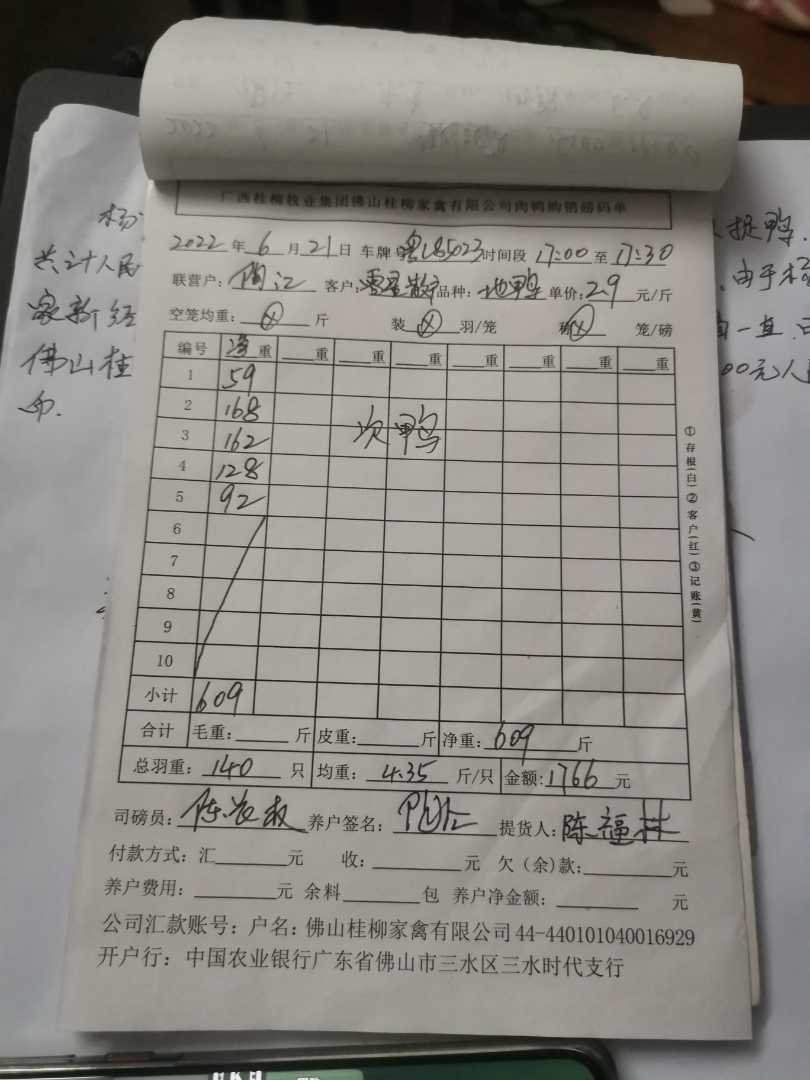 广西桂柳牧业集团佛山桂柳家禽有限公司肉鸭购销磅码单
2022 年 6 月 21 日 车牌 粤L85023 时间段 17:00 至 17:30
联营户: 江 客户: 零星散户 品种: 地鸭 单价: 2.9 元/斤
空笼均重: ⊗ 斤 装 ⊗ 羽/笼 称 ⊗ 笼/磅
编号 净重 重 重 重 重 重 重 重
1 59
2 168
3 162 次鸭
4 128
5 92
6
7
8
9
10
小计 609
合计 毛重: 斤 皮重: 斤 净重: 609 斤
总羽重: 140 只 均重: 4.35 斤/只 金额: 1766 元
司磅员: 陈 养户签名: 提货人: 陈福林
付款方式: 汇 元 收: 元 欠(余)款: 元
养户费用: 元 余料 包 养户净金额: 元
公司汇款账号: 户名: 佛山桂柳家禽有限公司 44-440101040016929
开户行: 中国农业银行广东省佛山市三水区三水时代支行
①存根(白)②客户(红)③记账(黄)
杨
共计人民
家新经
佛山桂
币.
捉鸭.
由于杨
一直
00元人